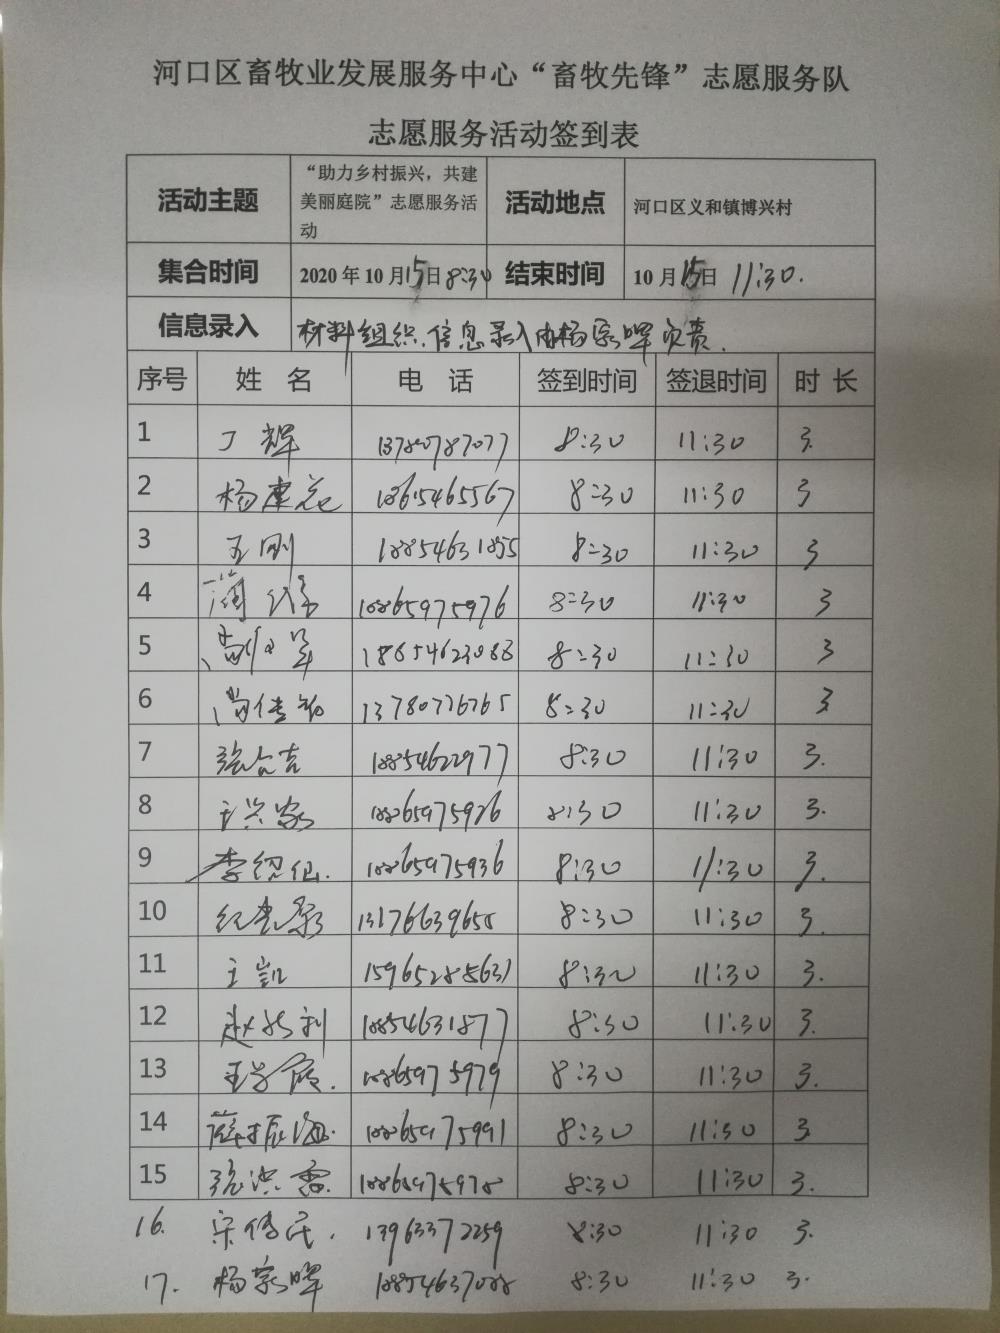 河口区畜牧业发展服务中心“畜牧先锋”志愿服务队
志愿服务活动签到表
活动主题 “助力乡村振兴，共建美丽庭院”志愿服务活动 活动地点 河口区义和镇博兴村
集合时间 2020年10月15日8:30 结束时间 10月15日 11:30.
信息录入 材料组织.信息录入由杨家晖负责.
序号 姓名 电话 签到时间 签退时间 时长
1 丁辉 13780787077 8:30 11:30 3.
2 杨建花 8:30 11:30 3
3 王刚 18854631855 8:30 11:30 3
4 18865975976 8:30 11:30 3
5 18654623088 8:30 11:30 3
6 13780776765 8:30 11:30 3
7 张合吉 18854622977 8:30 11:30 3.
8 王兴家 8:30 11:30 3.
9 李绍仙. 18865975936 8:30 11:30 3.
10 8:30 11:30 3.
11 王凯 8:30 11:30 3.
12 赵 利 18854631877 8:30 11:30 3.
13 王学 . 18865975979 8:30 11:30 3.
14 薛振海. 18865975991 8:30 11:30 3.
15 张洪雷. 8:30 11:30 3.
16. 宋传民. 13963372259 8:30 11:30 3.
17. 杨家晖 8:30 11:30 3.